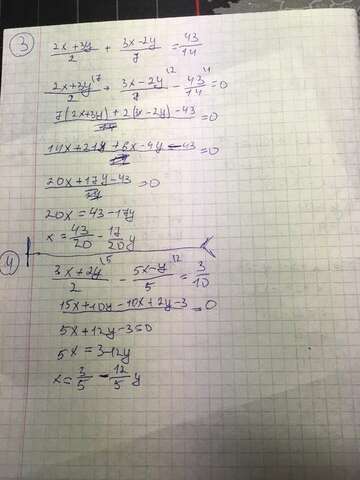 3
(2x+3y)/2 + (3x-2y)/7 = 43/14
(2x+3y)/2 ^7 + (3x-2y)/7 ^12 - 43/14 ^11 = 0
(7(2x+3y)+2(3x-2y)-43)/14 = 0
(14x+21y+6x-4y-43)/14 = 0
(20x+17y-43)/14 = 0
20x = 43-17y
x = 43/20 - 17/20 y
4
(3x+2y)/2 ^15 - (5x-y)/5 ^12 = 3/10
15x+10y-10x+2y-3 = 0
5x+12y-3=0
5x = 3-12y
x = 3/5 - 12/5 y